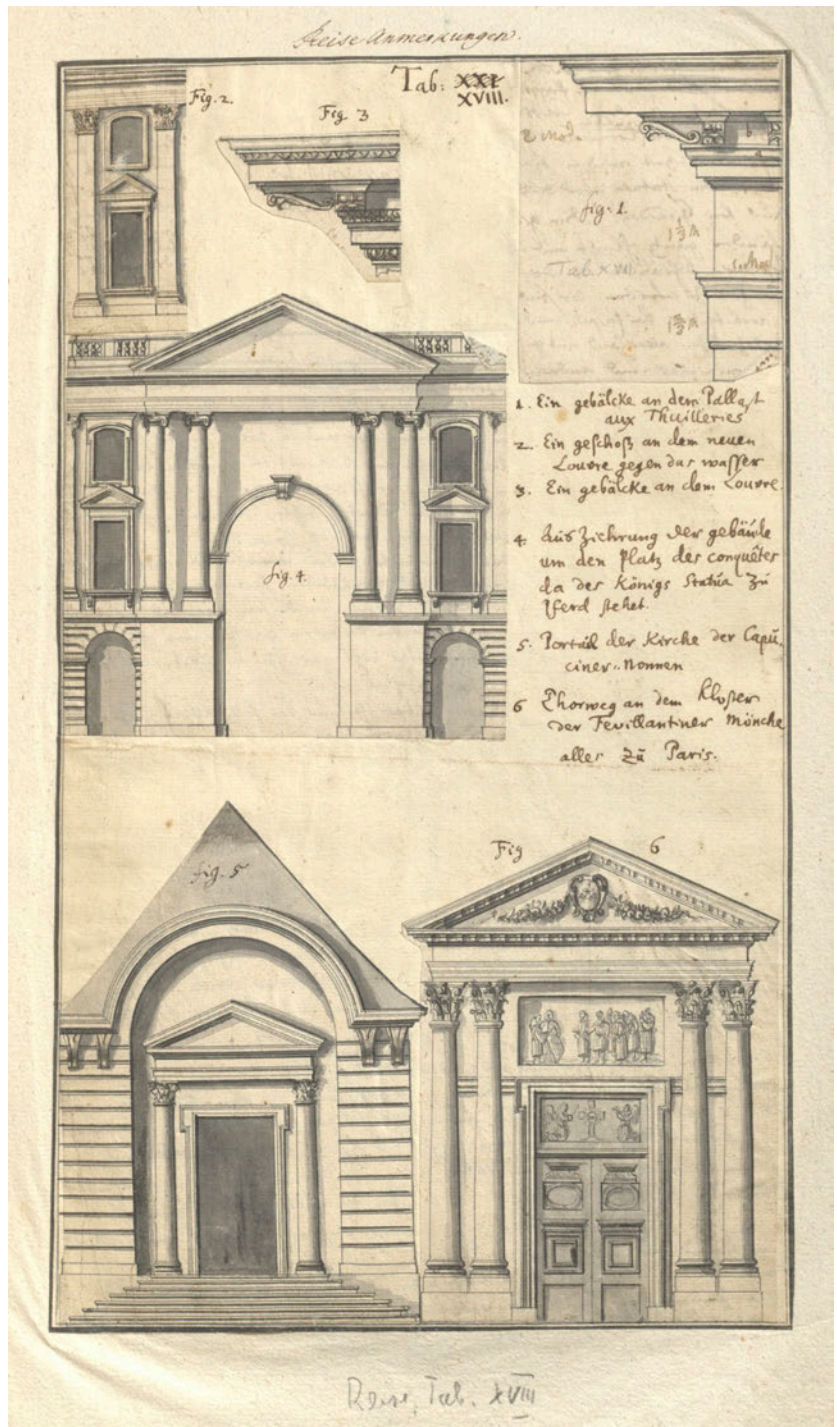 Reise Anmerkungen.
Tab: XXI
XVIII.
Fig. 2.
Fig 3
fig. 1.
2 Mod.
b
a
1⅔ A
Tab. XVII
1⅔ A
1. Ein gebälcke an dem Pallast
aux Thuilleries
2. Ein geschoß an dem neuen
Louvre gegen das wasser
3. Ein gebälcke an dem Louvre.
4. Aus Ziehrung der gebäude
um den Platz des conquêtes
da des Königs Statua zu
Pferd stehet.
5. Portal der Kirche der Capu,
ciner-Nonnen
6 Thorweg an dem Kloster
der Fevillantiner Mönche
alles zu Paris.
fig. 4.
fig. 5
Fig 6
Reise, Tab. XVIII